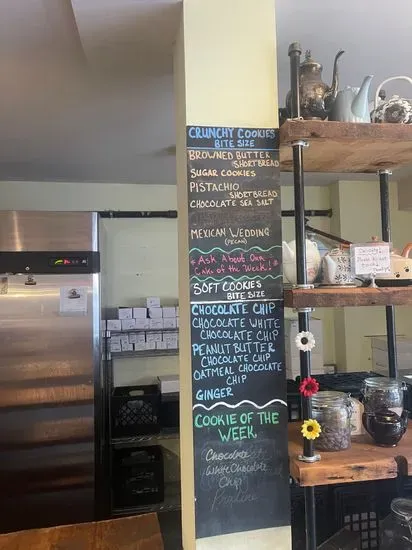 CRUNCHY COOKIES
BITE SIZE
BROWNED BUTTER
SHORTBREAD
SUGAR COOKIES
PISTACHIO
SHORTBREAD
CHOCOLATE SEA SALT
MEXICAN WEDDING
(PECAN)
Ask About Our
Cake of the Week!
SOFT COOKIES
BITE SIZE
CHOCOLATE CHIP
CHOCOLATE WHITE
CHOCOLATE CHIP
PEANUT BUTTER
CHOCOLATE CHIP
OATMEAL CHOCOLATE
CHIP
GINGER
COOKIE OF THE
WEEK
Chocolate
White Chocolate
Chip
Praline